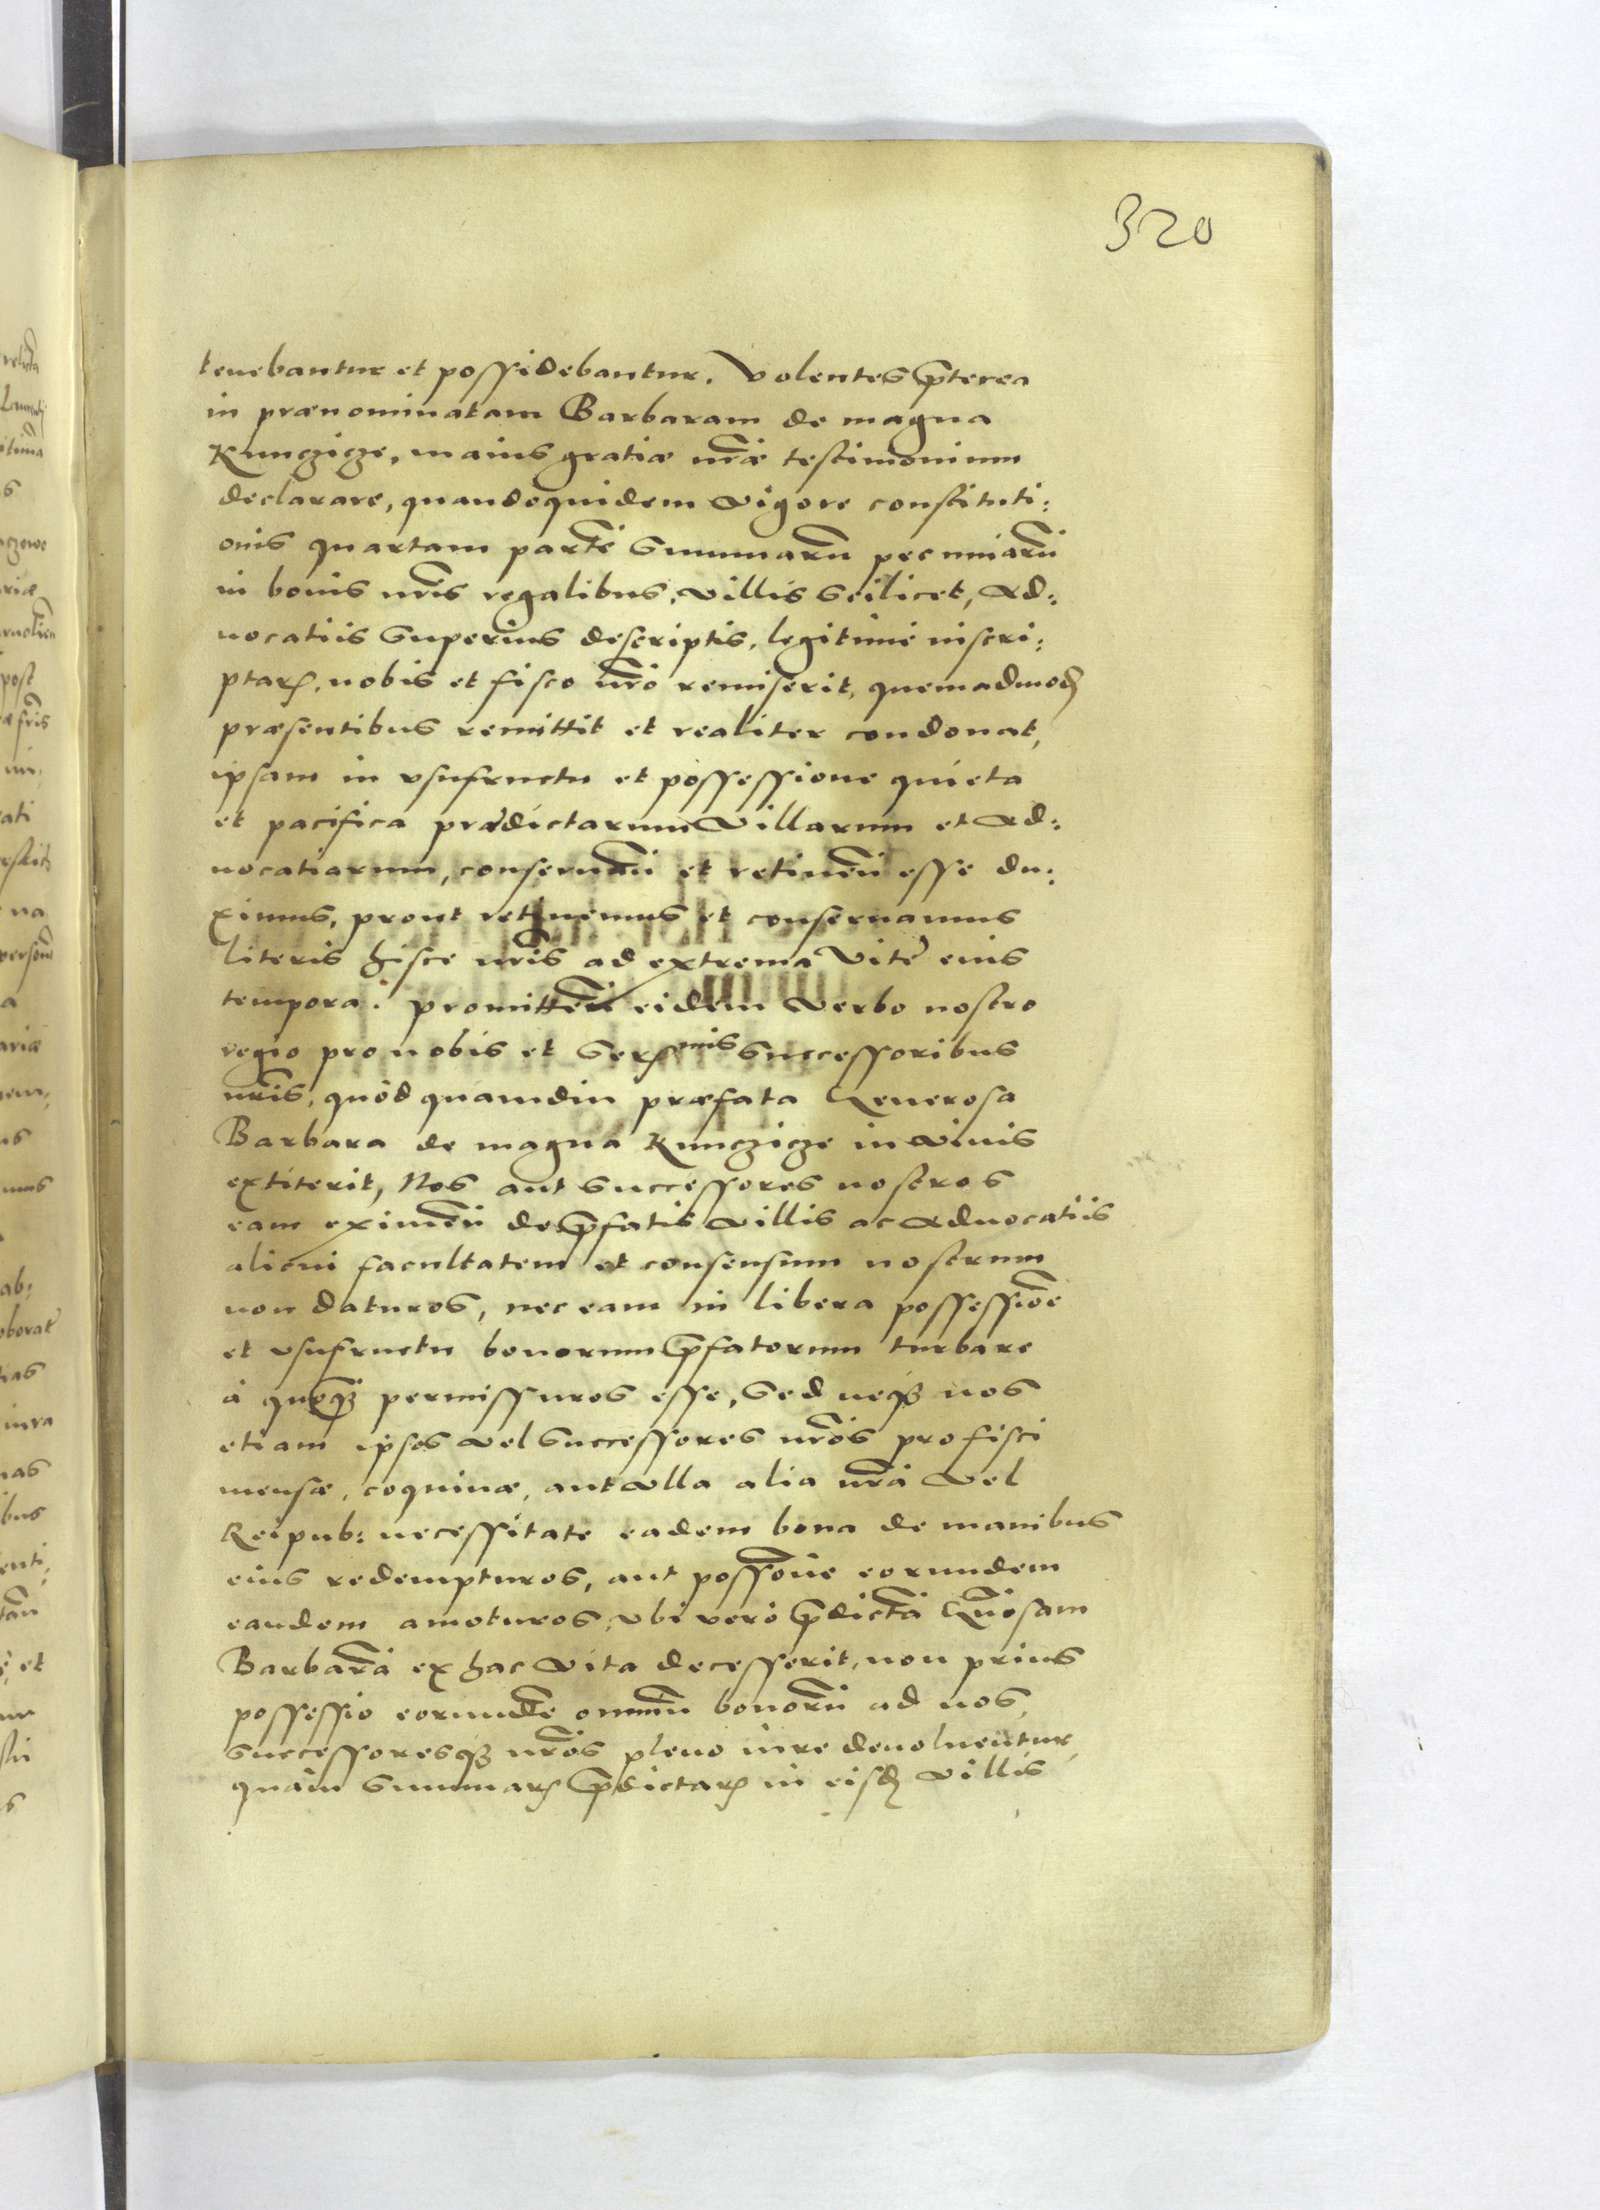 320
tenebantur et possidebantur. Volentes p̄terea
in prænominatam Barbaram de magna
Kunczicze, maius gratiæ nr̄æ testimonium
declarare, quandoquidem vigore constituti:
onis quartam parte͞ Summaru͞ pecuniaru͞
in bonis nr̄is regalibus, villis Scilicet, Ad:
uocatiis Superius descriptis, legitime inscri:
ptarꝝ, nobis et fisco nr̄o remiserit, quemadmodꝫ
præsentibus remittit et realiter condonat,
ipsam in vsufructu et possessione quieta
et pacifica prædictarum Villarum et Ad:
uocatiarum, conseruan͞ et retinen͞ esse du:
ximus, prout retinemus et conseruamus
literis hisce nr̄is ad extrema Vitę eius
tempora. promitten͞ eidem Verbo nostro
regio pro nobis et Serꝫmis Successoribus
nr̄is, quòd quamdiu præfata Generosa
Barbara de magna Kunczicze in viuis
extiterit, Nos aut Successores nostros
eam eximen͞ de p̄fatis villis ac Aduocatiis
alicui facultatem et consensum nostrum
non daturos, nec eam in libera possessio͞e
et vsufructu bonorum p̄fatorum turbare
à quoqꝫ permissuros esse, Sed neqꝫ nos
etiam ipsos vel Successores nr̄os pro fisci
mensæ, coquinæ, aut vlla alia nr̄a vel
Reipub: necessitate eadem bona de manibus
eius redempturos, aut posso͞ne eorundem
eandem amoturos, vbi vero p̄dicta͞ Gn̄osam
Barbara͞ ex hac vita decesserit, non prius
possessio eorunde͞ omniu͞ bonoru͞ ad nos,
successoresqꝫ nr̄os pleno iure deuoluentur
quàm Summarꝝ p̄dictarꝝ in eisdꝫ villis